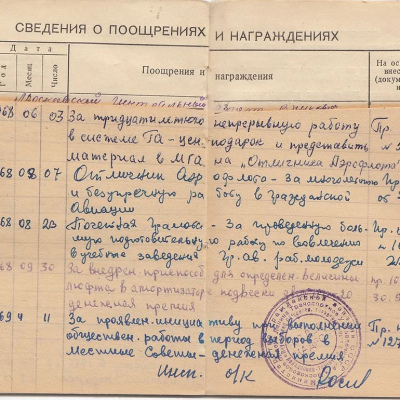 СВЕДЕНИЯ О ПООЩРЕНИЯХ И НАГРАЖДЕНИЯХ
Дата
Год Месяц Число
Поощрения и награждения
На ос
внес
(докум
и
Московский
68 06 03 За тридцатилетнюю непрерывную работу Пр.
в системе ГА - цен. подарок и представить
материал в МГА на "Отличника Аэрофлота"
68 08 07 Отличник Аэрофлота - За многолетн
и безупречную работу в Гражданской
Авиации
68 08 23 Почетная Грамота - За проведенную боль-
шую подготовительную работу по вовлечению
в учебн. заведения Гр. ав. раб. молодежи
68 09 30 За внедрен. приспособ для определен. величины
люфта в амортизаторе подвески
денежная премия
69 4 11 За проявлен. инициативу при выполнении
обществен. работы в период выборов в
местные Советы - денежная премия
Инсп. О/К